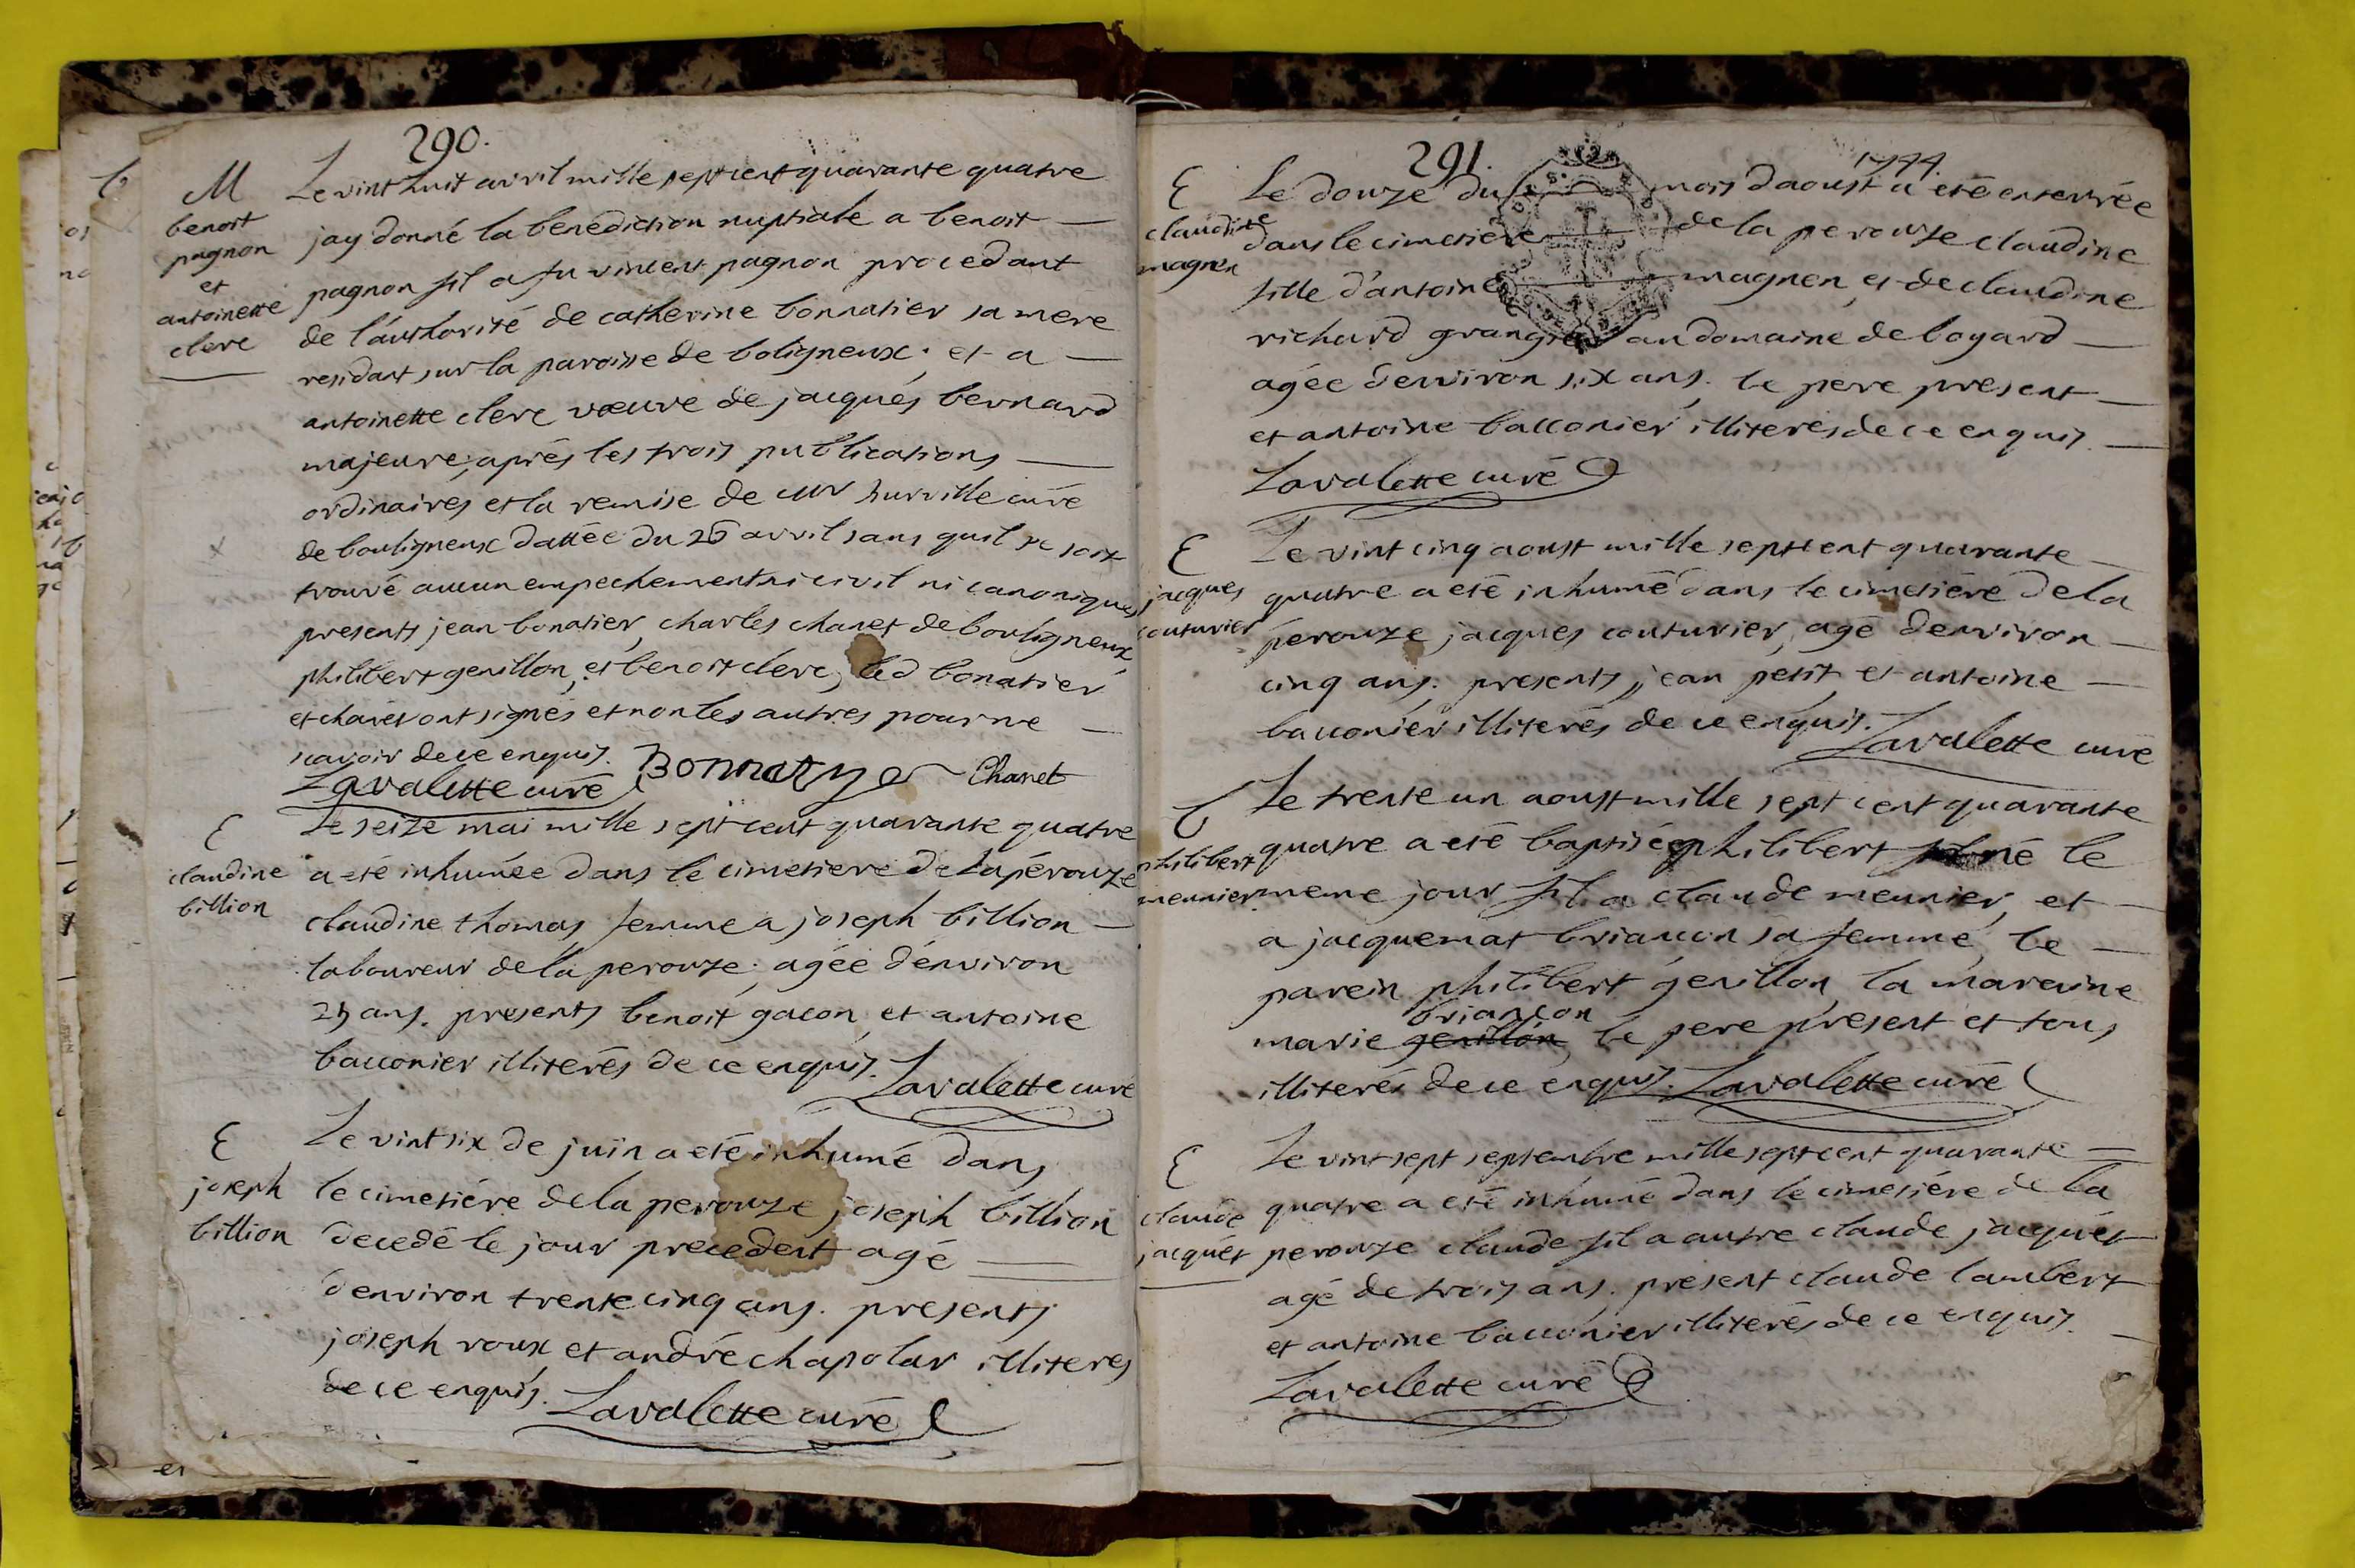 290.
M
benoit
pagnon
et
antoinette
clerc
Le vint huit avril mille sept cent quarante quatre
jay donné la benediction nuptiale a benoit
pagnon fil a fu vincent pagnon procedant
de l'authorité de catherine bonnatier sa mere
residant sur la paroisse de boligneux. et a
antoinette clerc vœuve de jacques bernard
majeure, aprés les trois publications
ordinaires et la remise de Mr hurville curé
de bouligneux dattée du 26 avril sans quil se soit
trouvé aucun empechement ni civil ni canonique
presents jean bonatier, charles chanet de bouligneux
philibert genillon, et benoit clerc, led bonatier
et chanet ont signés et non les autres pour ne
scavoir de ce enquis.
Lavalette curé Bonnatyer Chanet
E
claudine
billion
Le seize mai mille sept cent quarante quatre
a eté inhumée dans le cimetiere de la pérouze
claudine thomas femme a joseph billion
laboureur de la perouze, agée d'environ
25 ans. presents benoit gacon et antoine
bacconier illiterés de ce enquis.
Lavalette curé
E
joseph
billion
Le vint six de juin a eté inhumé dans
le cimetiére de la perouze joseph billion
decedé le jour precedent agé
d'environ trente cinq ans. presents
joseph roux et andré chapolar illiteres
de ce enquis. Lavalette curé
291.
1744.
E
claudine
magnen
Le douze du mois daoust a eté enterrée
dans le cimetiére de la perouze claudine
fille d'antoine magnen et de claudine
richard granger au domaine de boyard
agée d'environ six ans. le pere present
et antoine bacconier illiterés de ce enquis.
Lavalette curé
E
jacques
couturier
Le vint cinq aoust mille sept cent quarante
quatre a eté inhumé dans le cimetiére de la
perouze jacques couturier, agé denviron
cinq ans. presents jean petit et antoine
bacconier illiterés de ce enquis.
Lavalette curé
b
philibert
meunier
Le trente un aoust mille sept cent quarante
quatre a eté baptisé philibert né le
meme jour fil a claude meunier, et
a jacquemat briancon sa femme, le
parein philibert genillon, la mareine
briancon
marie genillon, le pere present et tous
illiterés de ce enquis. Lavalette curé
E
claude
jacquet
Le vint sept septembre mille sept cent quarante
quatre a eté inhumé dans le cimetiére de la
perouze claude fil a autre claude jacquet
agé de trois ans. present claude lambert
et antoine bacconier illiterés de ce enquis.
Lavalette curé